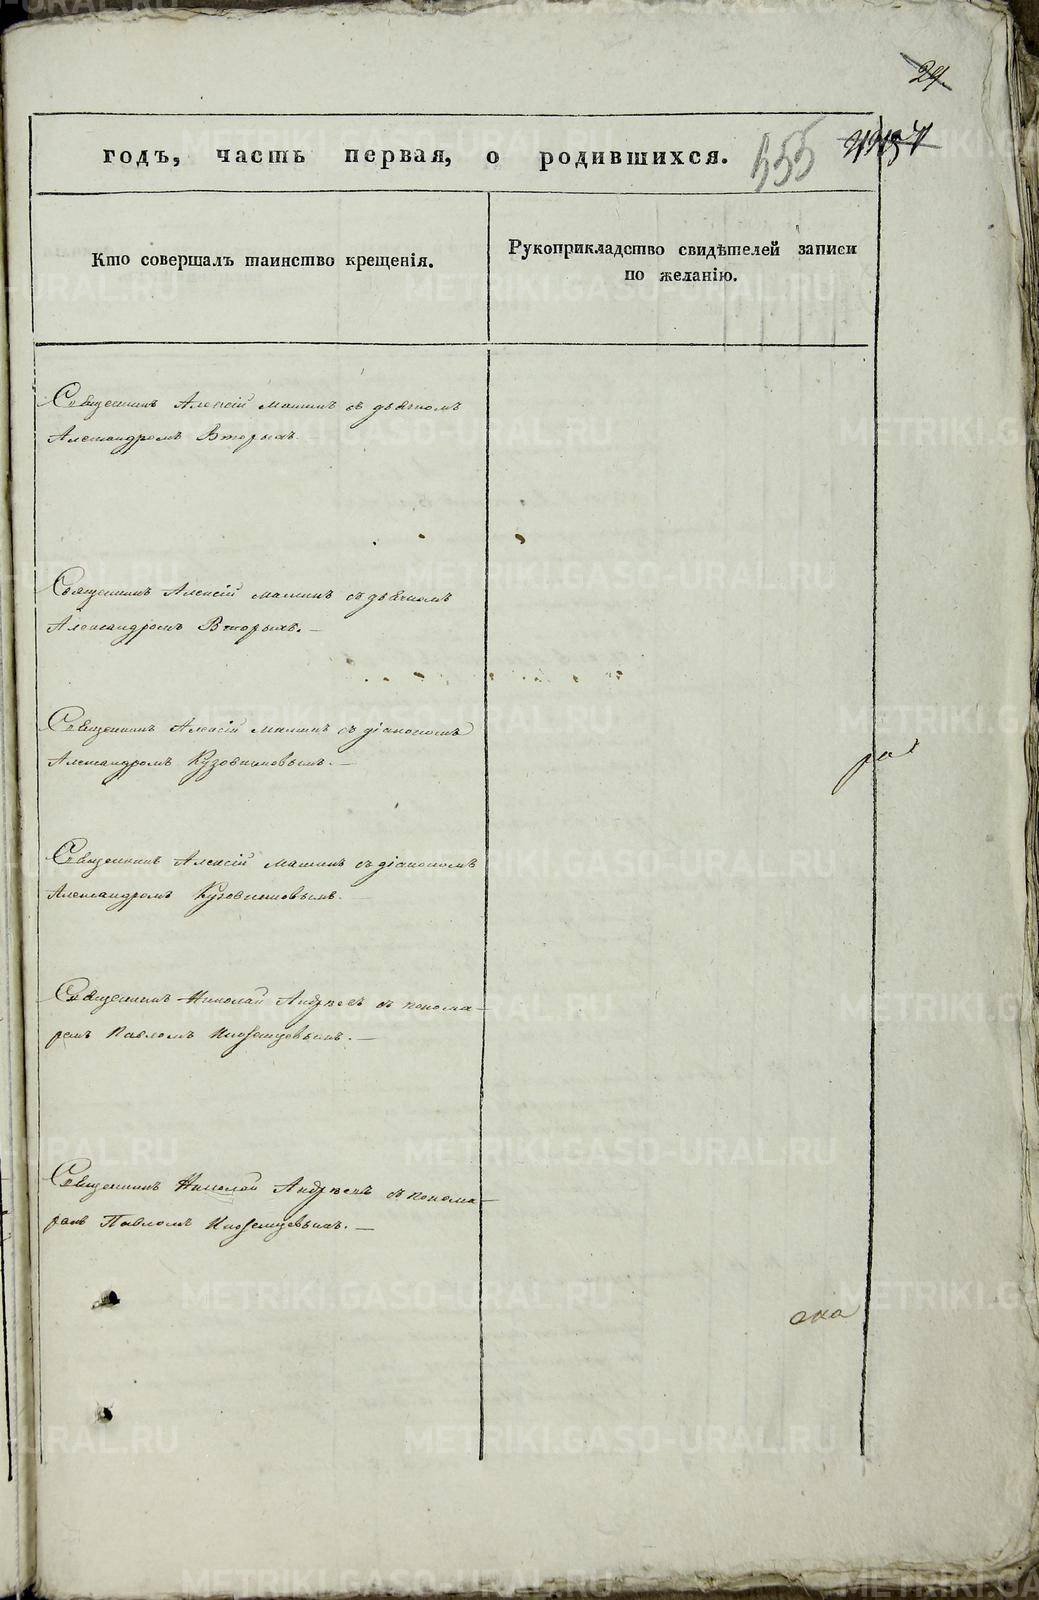 24.
годъ, часть первая, о родившихся. 555
Кто совершалъ таинство крещенія.
Рукоприкладство свидѣтелей записи
по желанію.
Священникъ Алексій Машинъ съ дьячкомъ
Александромъ Вторыхъ.
Священникъ Алексій Машинъ съ дьячкомъ
Александромъ Вторыхъ. —
Священникъ Алексій Машинъ съ діакономъ
Александромъ Кузовниковымъ. —
Священникъ Алексій Машинъ съ діакономъ
Александромъ Кузовниковымъ. —
Священникъ Николай Андреевъ съ понома-
ремъ Павломъ Иноземцовымъ. —
Священникъ Николай Андреевъ съ понома-
ремъ Павломъ Иноземцовымъ. —
METRIKI.GASO-URAL.RU